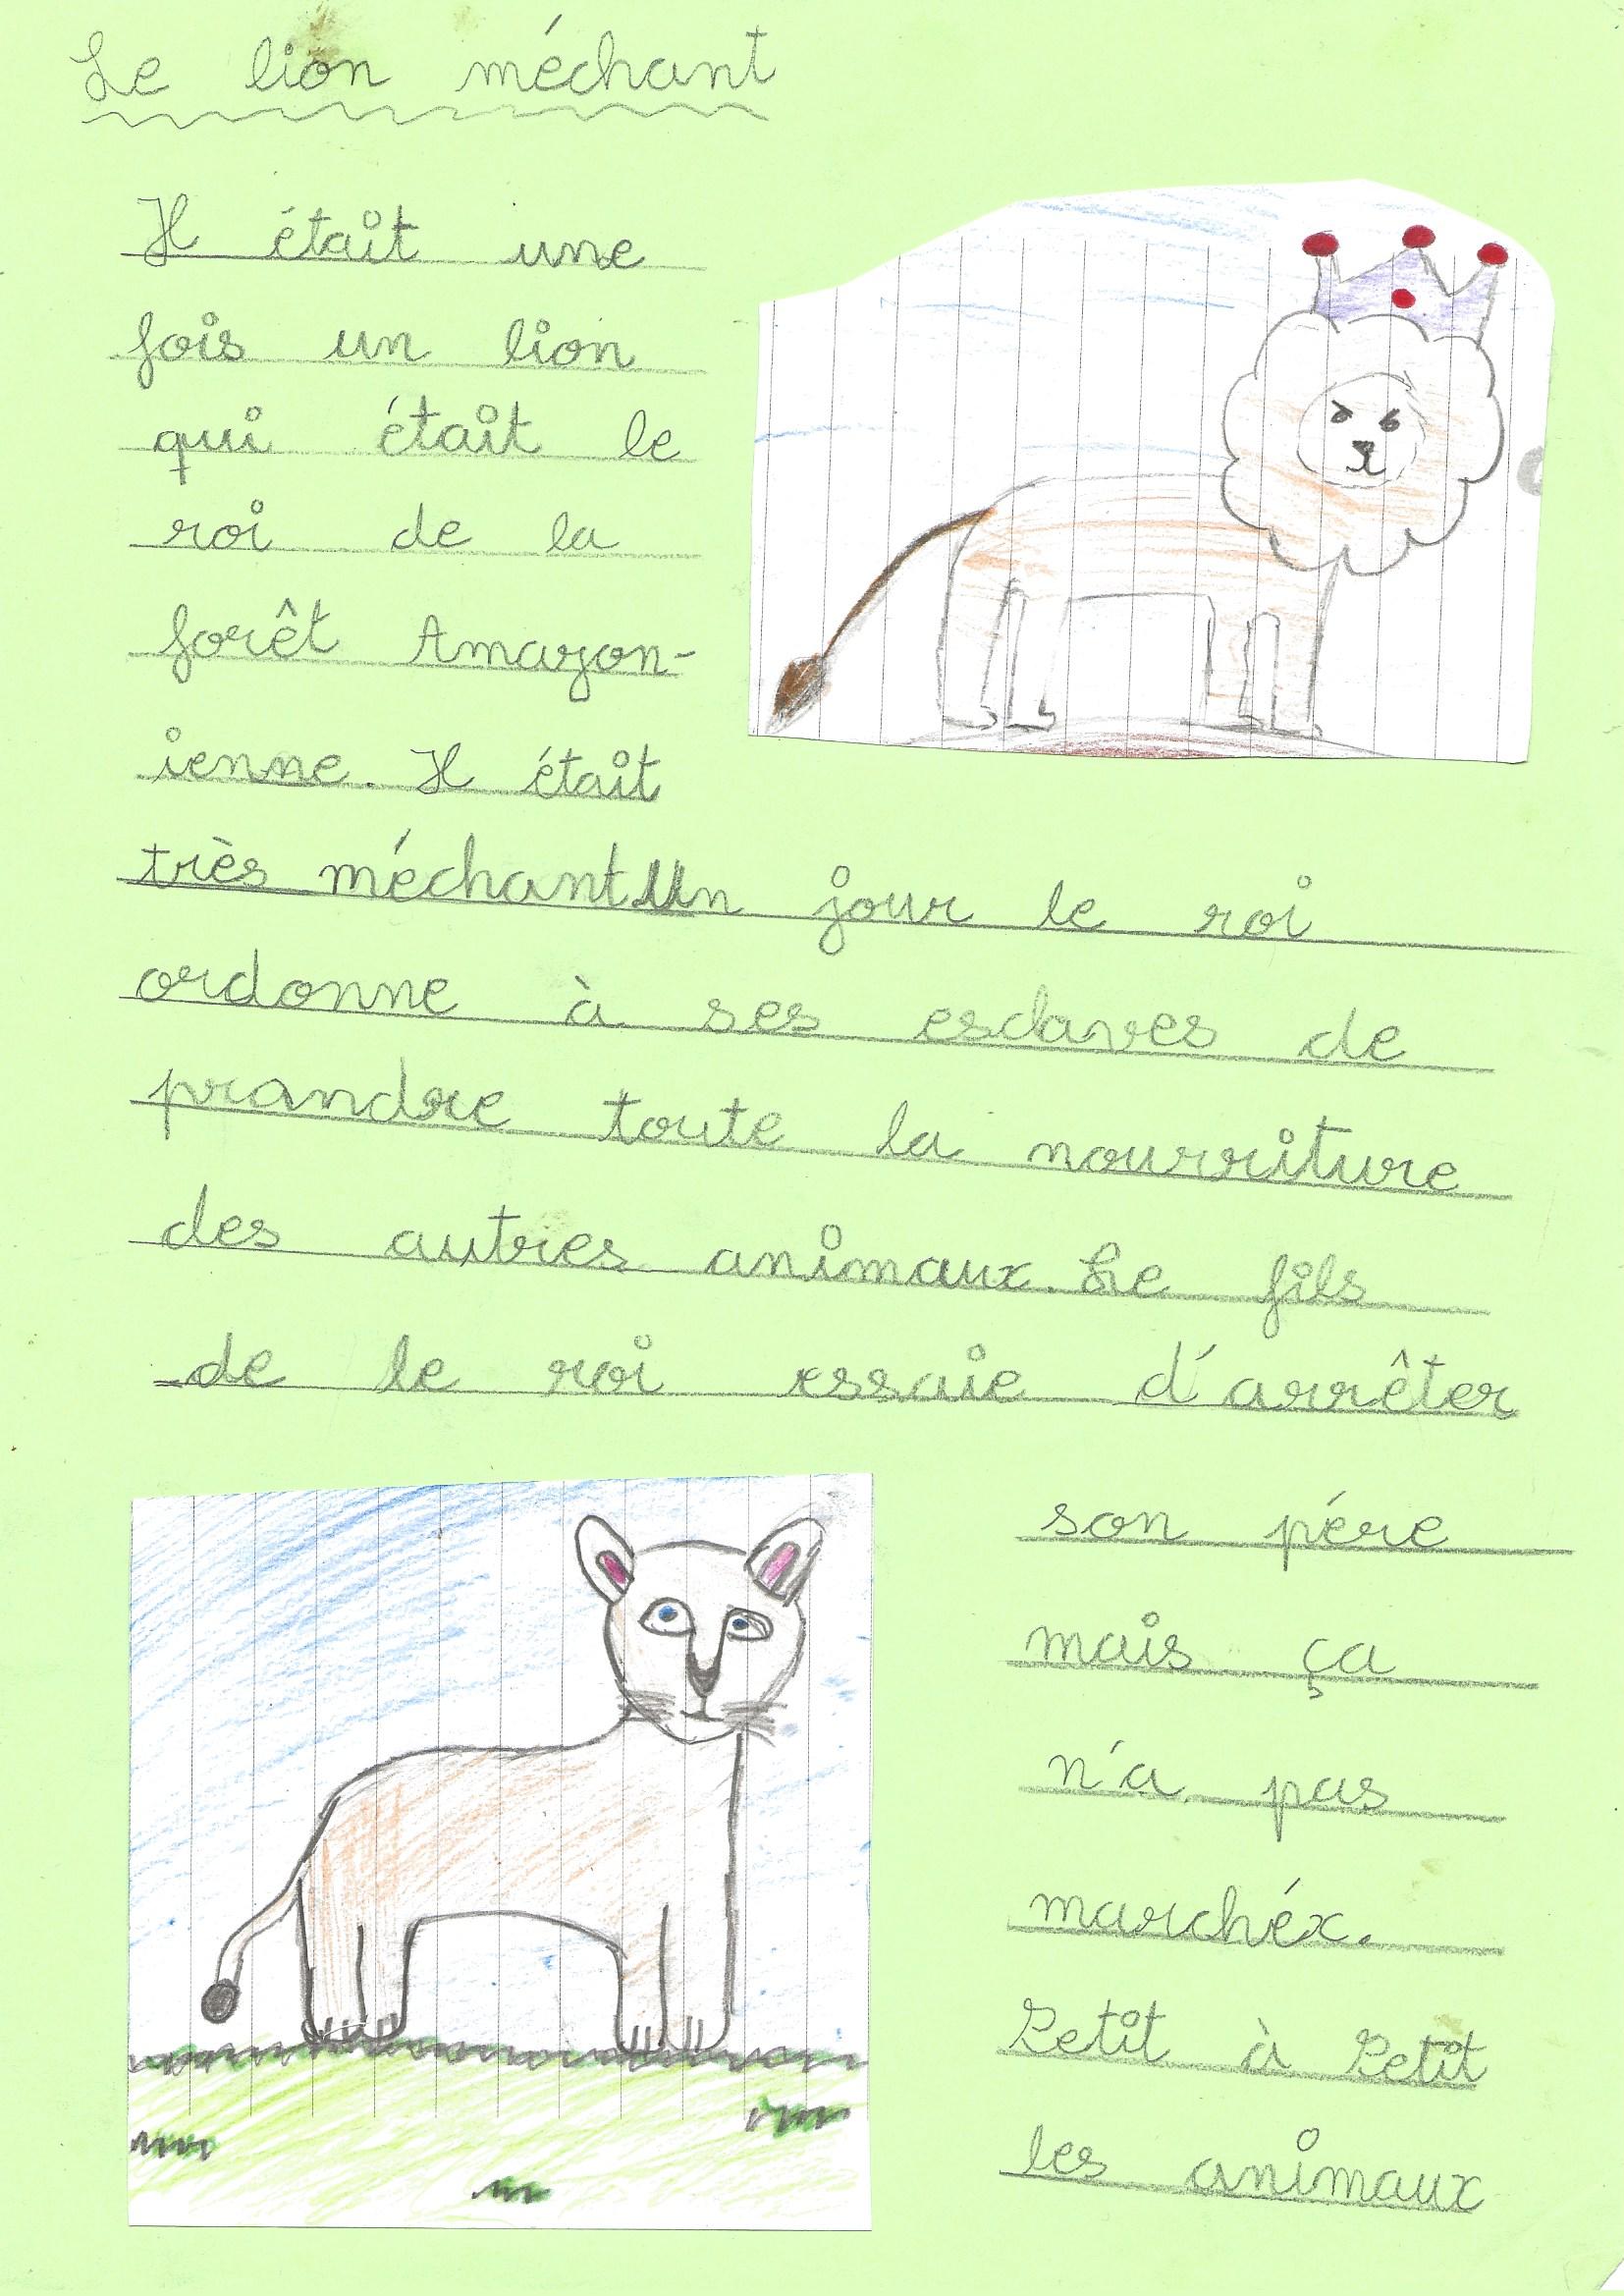 Le lion méchant
Il était une
fois un lion
qui était le
roi de la
forêt Amazon-
ienne. Il était
très méchant. Un jour le roi
ordonne à ses esclaves de
prandre toute la nourriture
des autres animaux. Le fils
de le roi essaie d'arrêter
son pére
mais ça
n'a pas
marchéx.
Petit à Petit
les animaux